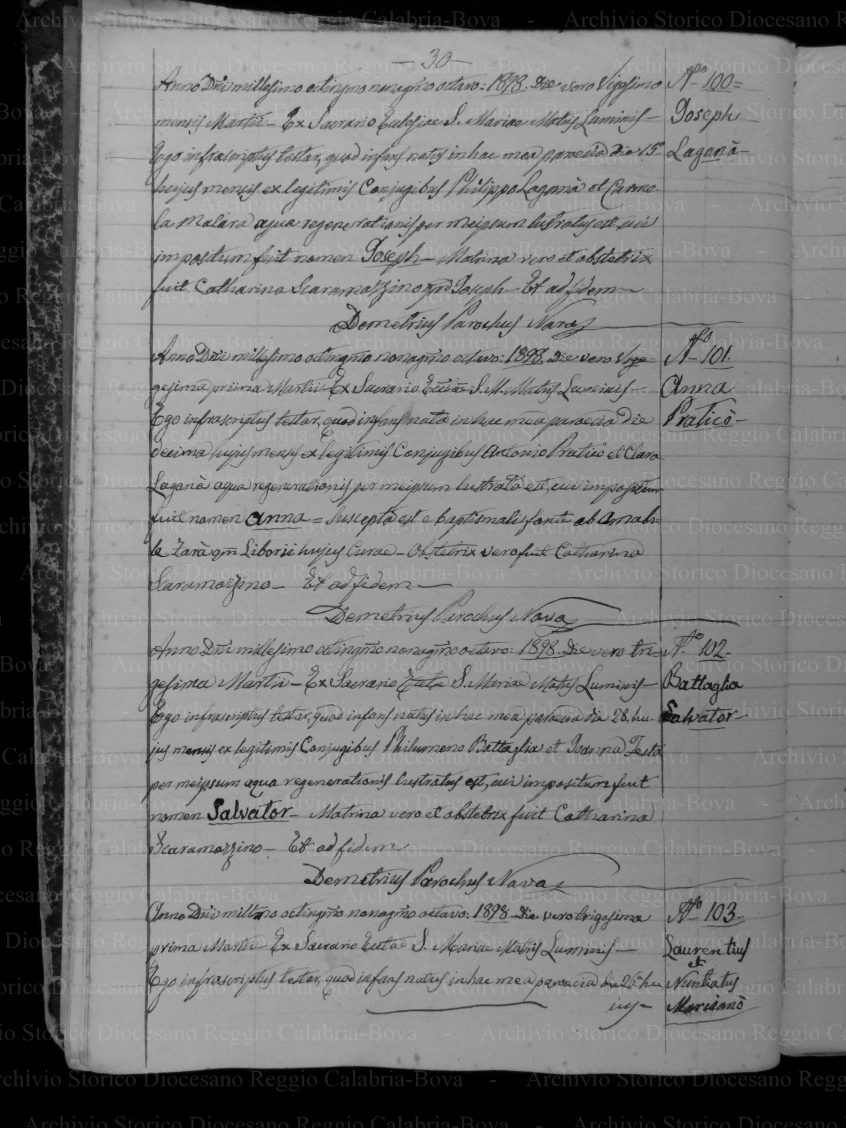 - 30 -
Anno Dni millesimo octingmo nonagmo octavo: 1898. Die vero Vigesimo
mensis Martii - Ex Sacrario Ecclesiae S. Mariae Matris Luminis -
Ego infrascriptus testor, quod infans natus in hac mea paroecia die 15ª
hujus mensis ex legitimis Conjugibus Philippo Laganà et Carme-
la Malara aqua regenerationis per meipsum lustratus est cui
impositum fuit nomen Joseph - Matrina vero et obstetrix
fuit Catharina Scaramozzino qm Joseph - Et ad fidem -
Demetrius Parochus Nava
Nº 100 =
Joseph
Laganà -
Anno Dni millesimo octingmo nonagmo octavo: 1898. Die vero
gesima prima Martii - Ex Sacrario Ecclae S. M. Matris Luminis -
Ego infrascriptus testor, quod infans nata in hac mea paroecia die
decima hujus mensis ex legitimis Conjugibus Antonio Praticò et Clara
Laganà aqua regenerationis per meipsum lustrata est, cui impositum
fuit nomen Anna = suscepta est e baptismali fonte ab Amabi-
le Zarà qm Liborii hujus Curae - Obstetrix vero fuit Catharina
Scaramozzino - Et ad fidem -
Demetrius Parochus Nava
Nº 101.
Anna
Praticò -
Anno Dni millesimo octingmo nonagmo octavo: 1898. Die vero tri=
gesima Martii - Ex Sacrario Ecclae S. Mariae Matris Luminis -
Ego infrascriptus testor, quod infans natus in hac mea paroecia die 28. hu-
jus mensis ex legitimis Conjugibus Philumeno Battaglia et Joanna Testa
per meipsum aqua regenerationis lustratus est, cui impositum fuit
nomen Salvator - Matrina vero et obstetrix fuit Catharina
Scaramozzino - Et ad fidem
Demetrius Parochus Nava
Nº 102 -
Battaglia
Salvator -
Anno Dni millmo octingmo nonagmo octavo: 1898 Die vero trigesima
prima Martii - Ex Sacrario Ecclae S. Mariae Matris Luminis -
Ego infrascriptus testor, quod infans natus in hac mea paroecia die 25 hu
ius -
Nº 103 =
Laurentius
et
Nuntiatus
Marcianò
Archivio Storico Diocesano Reggio Calabria-Bova